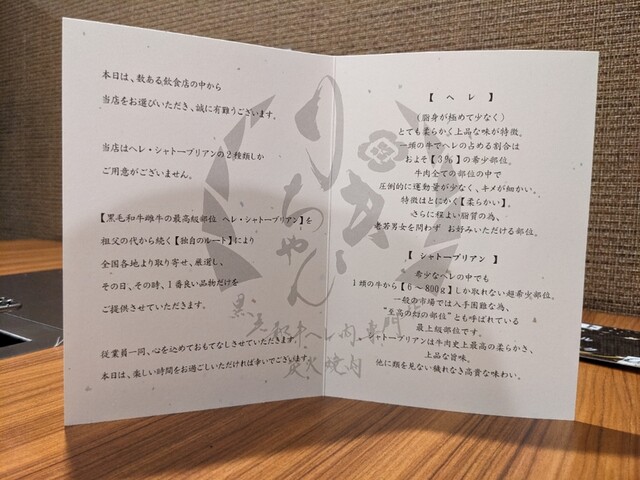 本日は、数ある飲食店の中から
当店をお選びいただき、誠に有難うございます。
当店はヘレ・シャトーブリアンの2種類しか
ご用意がございません。
【黒毛和牛雌牛の最高級部位 ヘレ・シャトーブリアン】を
祖父の代から続く【独自のルート】により
全国各地より取り寄せ、厳選し、
その日、その時、1番良い品物だけを
ご提供させていただきます。
従業員一同、心を込めておもてなしさせていただきます。
本日は、楽しい時間をお過ごしいただければ幸いでございます。
【 ヘレ 】
(脂身が極めて少なく)
とても柔らかく上品な味が特徴。
一頭の牛でヘレの占める割合は
およそ【3%】の希少部位。
牛肉全ての部位の中で
圧倒的に運動量が少なく、キメが細かい。
特徴はとにかく【柔らかい】。
さらに程よい脂質の為、
老若男女を問わず お好みいただける部位。
【 シャトーブリアン 】
希少なヘレの中でも
1頭の牛から【6〜800g】しか取れない超希少部位。
一般の市場では入手困難な為、
"至高の幻の部位"とも呼ばれている
最上級部位です。
シャトーブリアンは牛肉史上最高の柔らかさ、
上品な旨味、
他に類を見ない穢れなき高貴な味わい。
りちゃん
黒毛和牛ヘレ肉専門
炭火焼肉